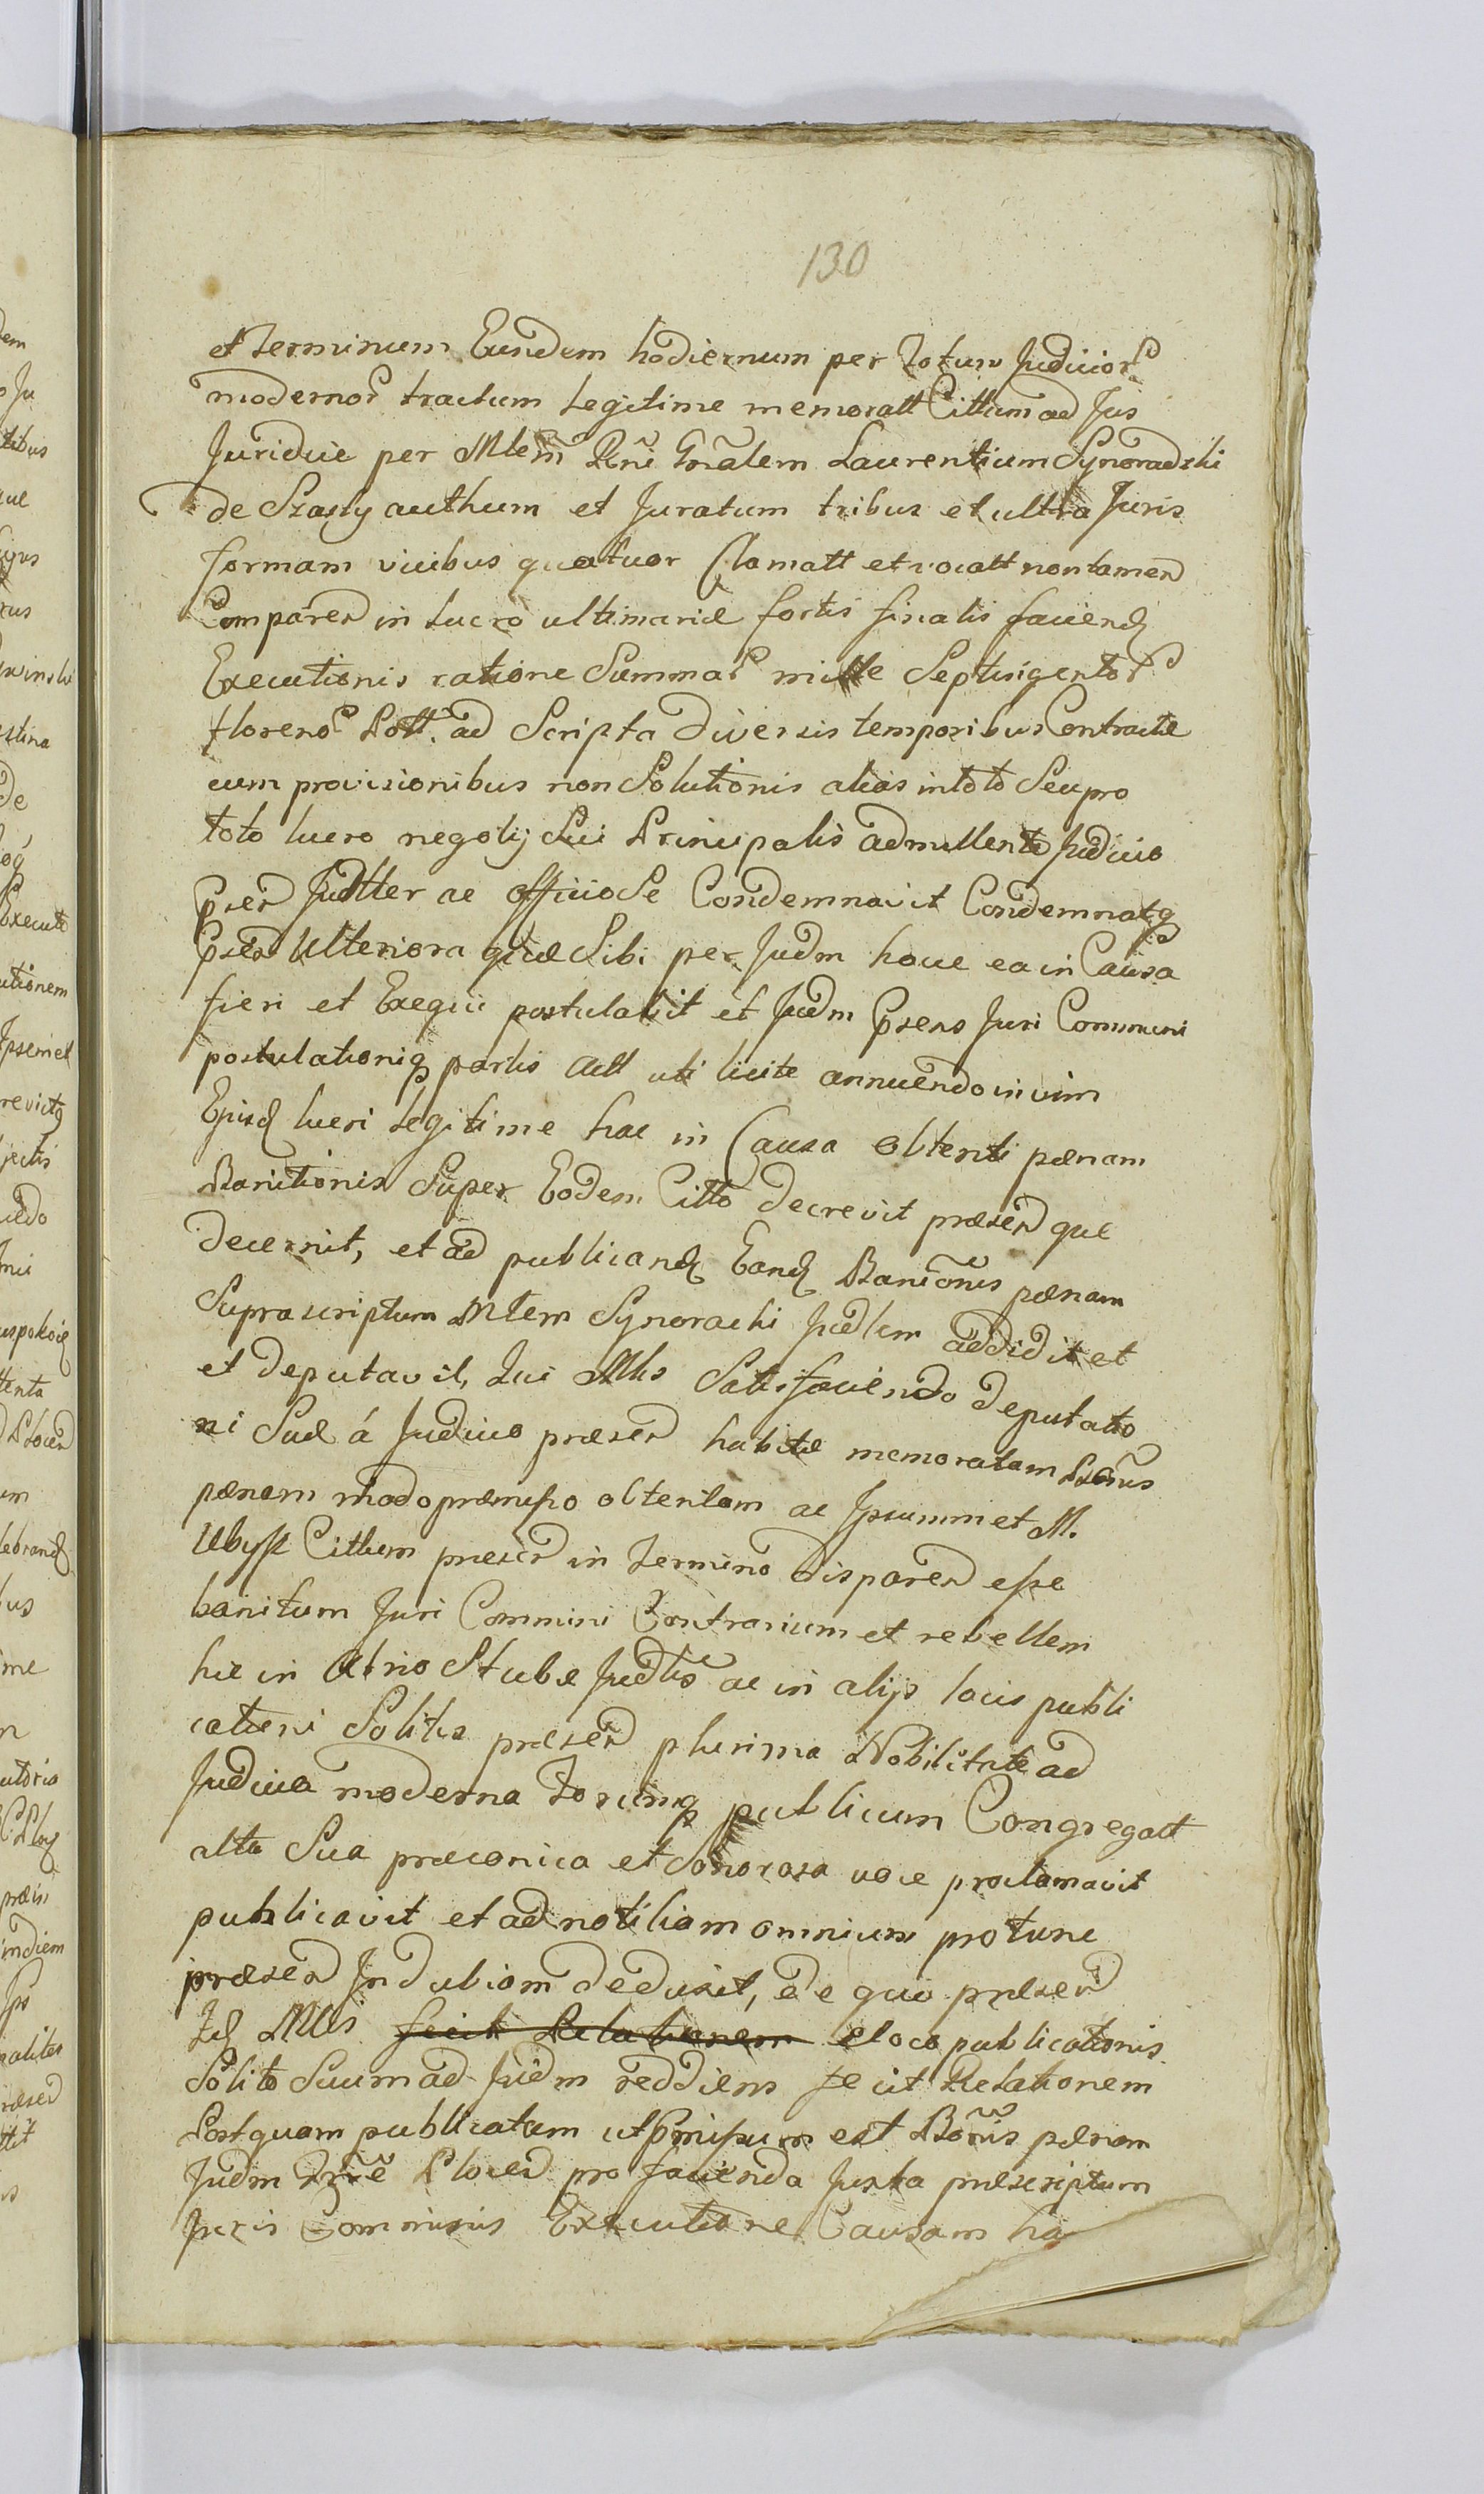 130
et Terminum Eundem hodiernum per Totum Judicior
modernor tractum Legitime memoratt Cittum ad Jus
Juridice per Mlem Rni Gnalem Laurentium Synoradzki
de Szady authum et Juratum tribus et ultra Juris
formam vicibus quatuor Clamatt et vocatt non tamen
Comparen in Lucro ultimariæ fortis finalis faciend
Executionis ratione Summar mille Septingentor
florenor Poll. ad Scripta diversis temporibus Contractæ
cum provisionibus non Solutionis alias in toto Seu pro
toto lucro negotij Sui Principalis admittente Judicio
Pren Judtter ac officiose Condemnavit Condemnatq
Pren Ulteriora quæ Sibi per Judm hocce ea in Causa
fieri et Exequi postulavit et Judm Prens Juri Communi
postulationiq partis Act uti licite annuendo in vim
Ejusd lucri Legitime hac in Causa obtenti pænam
Banitionis Super Eodem Citto decrevit præsen que
decernit, et ad publicand Eand Banionis pænam
Suprascriptum Mlem Synoracki Judlem addidit et
et deputavit, Qui Mlis Satisfaciendo deputatio
ni Suæ á Judicio præsen habitæ memoratam Banis
pænam modo præmisso obtentam ac Ipsummet M.
Cittum præsen in Termino disparen esse
banitum Juri Communi Contrarium et rebellem
hic in Atrio Stubæ Judlis ac in alijs locis publi
cationi Solitis præsen plurima Nobilitate ad
Judicia moderna Forumq publicum Congregatt
alta Sua præconica et Sonorosa voce proclamavit
publicavit et ad notitiam omnium protunc
præsen Indubiam deduxit, de quo præsen
Id Mlis fecit Relationem e loco publicationis
Solito Suum ad Judm reddiens fecit Relationem
Postquam publicatam ut Pmissum est Bonis pænam
Judm Trre Plocen pro facienda Juxta præscriptum
Juris Communis Executione Causam ha